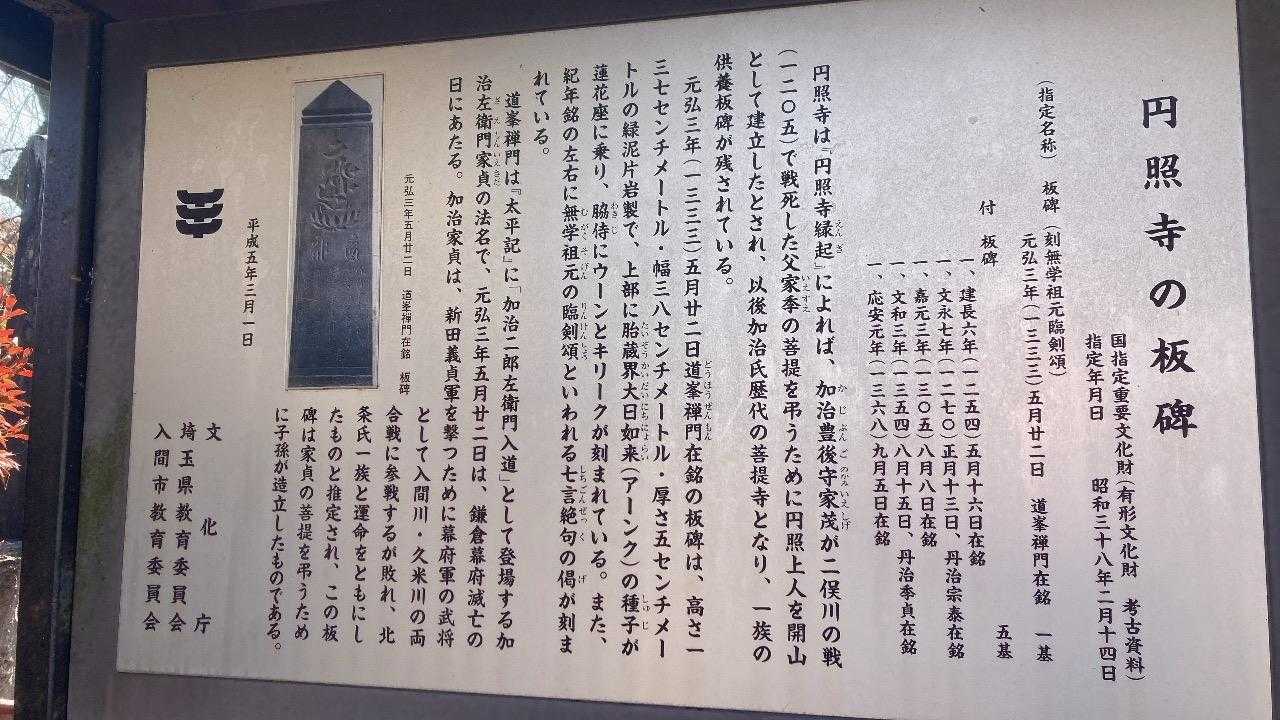 円照寺の板碑
国指定重要文化財(有形文化財 考古資料)
指定年月日 昭和三十八年二月十四日
(指定名称) 板碑(刻無学祖元臨剣頌)
元弘三年(一三三三)五月廿二日 道峯禅門在銘 一基
付 板碑 五基
一、建長六年(一二五四)五月十六日在銘
一、文永七年(一二七〇)正月十三日、丹治宗泰在銘
一、嘉元三年(一三〇五)八月八日在銘
一、文和三年(一三五四)八月十五日、丹治季貞在銘
一、応安元年(一三六八)九月五日在銘
円照寺は『円照寺縁起』によれば、加治豊後守家茂が二俣川の戦
(一二〇五)で戦死した父家季の菩提を弔うために円照上人を開山
として建立したとされ、以後加治氏歴代の菩提寺となり、一族の
供養板碑が残されている。
元弘三年(一三三三)五月廿二日道峯禅門在銘の板碑は、高さ一
三七センチメートル・幅三八センチメートル・厚さ五センチメー
トルの緑泥片岩製で、上部に胎蔵界大日如来(アーンク)の種子が
蓮花座に乗り、脇侍にウーンとキリークが刻まれている。また、
紀年銘の左右に無学祖元の臨剣頌といわれる七言絶句の偈が刻ま
れている。
道峯禅門は『太平記』に「加治二郎左衛門入道」として登場する加
治左衛門家貞の法名で、元弘三年五月廿二日は、鎌倉幕府滅亡の
日にあたる。加治家貞は、新田義貞軍を撃つために幕府軍の武将
として入間川・久米川の両
合戦に参戦するが敗れ、北
条氏一族と運命をともにし
たものと推定され、この板
碑は家貞の菩提を弔うため
に子孫が造立したものである。
元弘三年五月廿二日 道峯禅門在銘 板碑
平成五年三月一日
文化庁
埼玉県教育委員会
入間市教育委員会